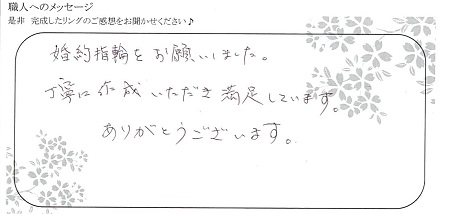 職人へのメッセージ
是非 完成したリングのご感想をお聞かせください♪
婚約指輪をお願いしました。
丁寧に作成いただき満足しています。
ありがとうございます。